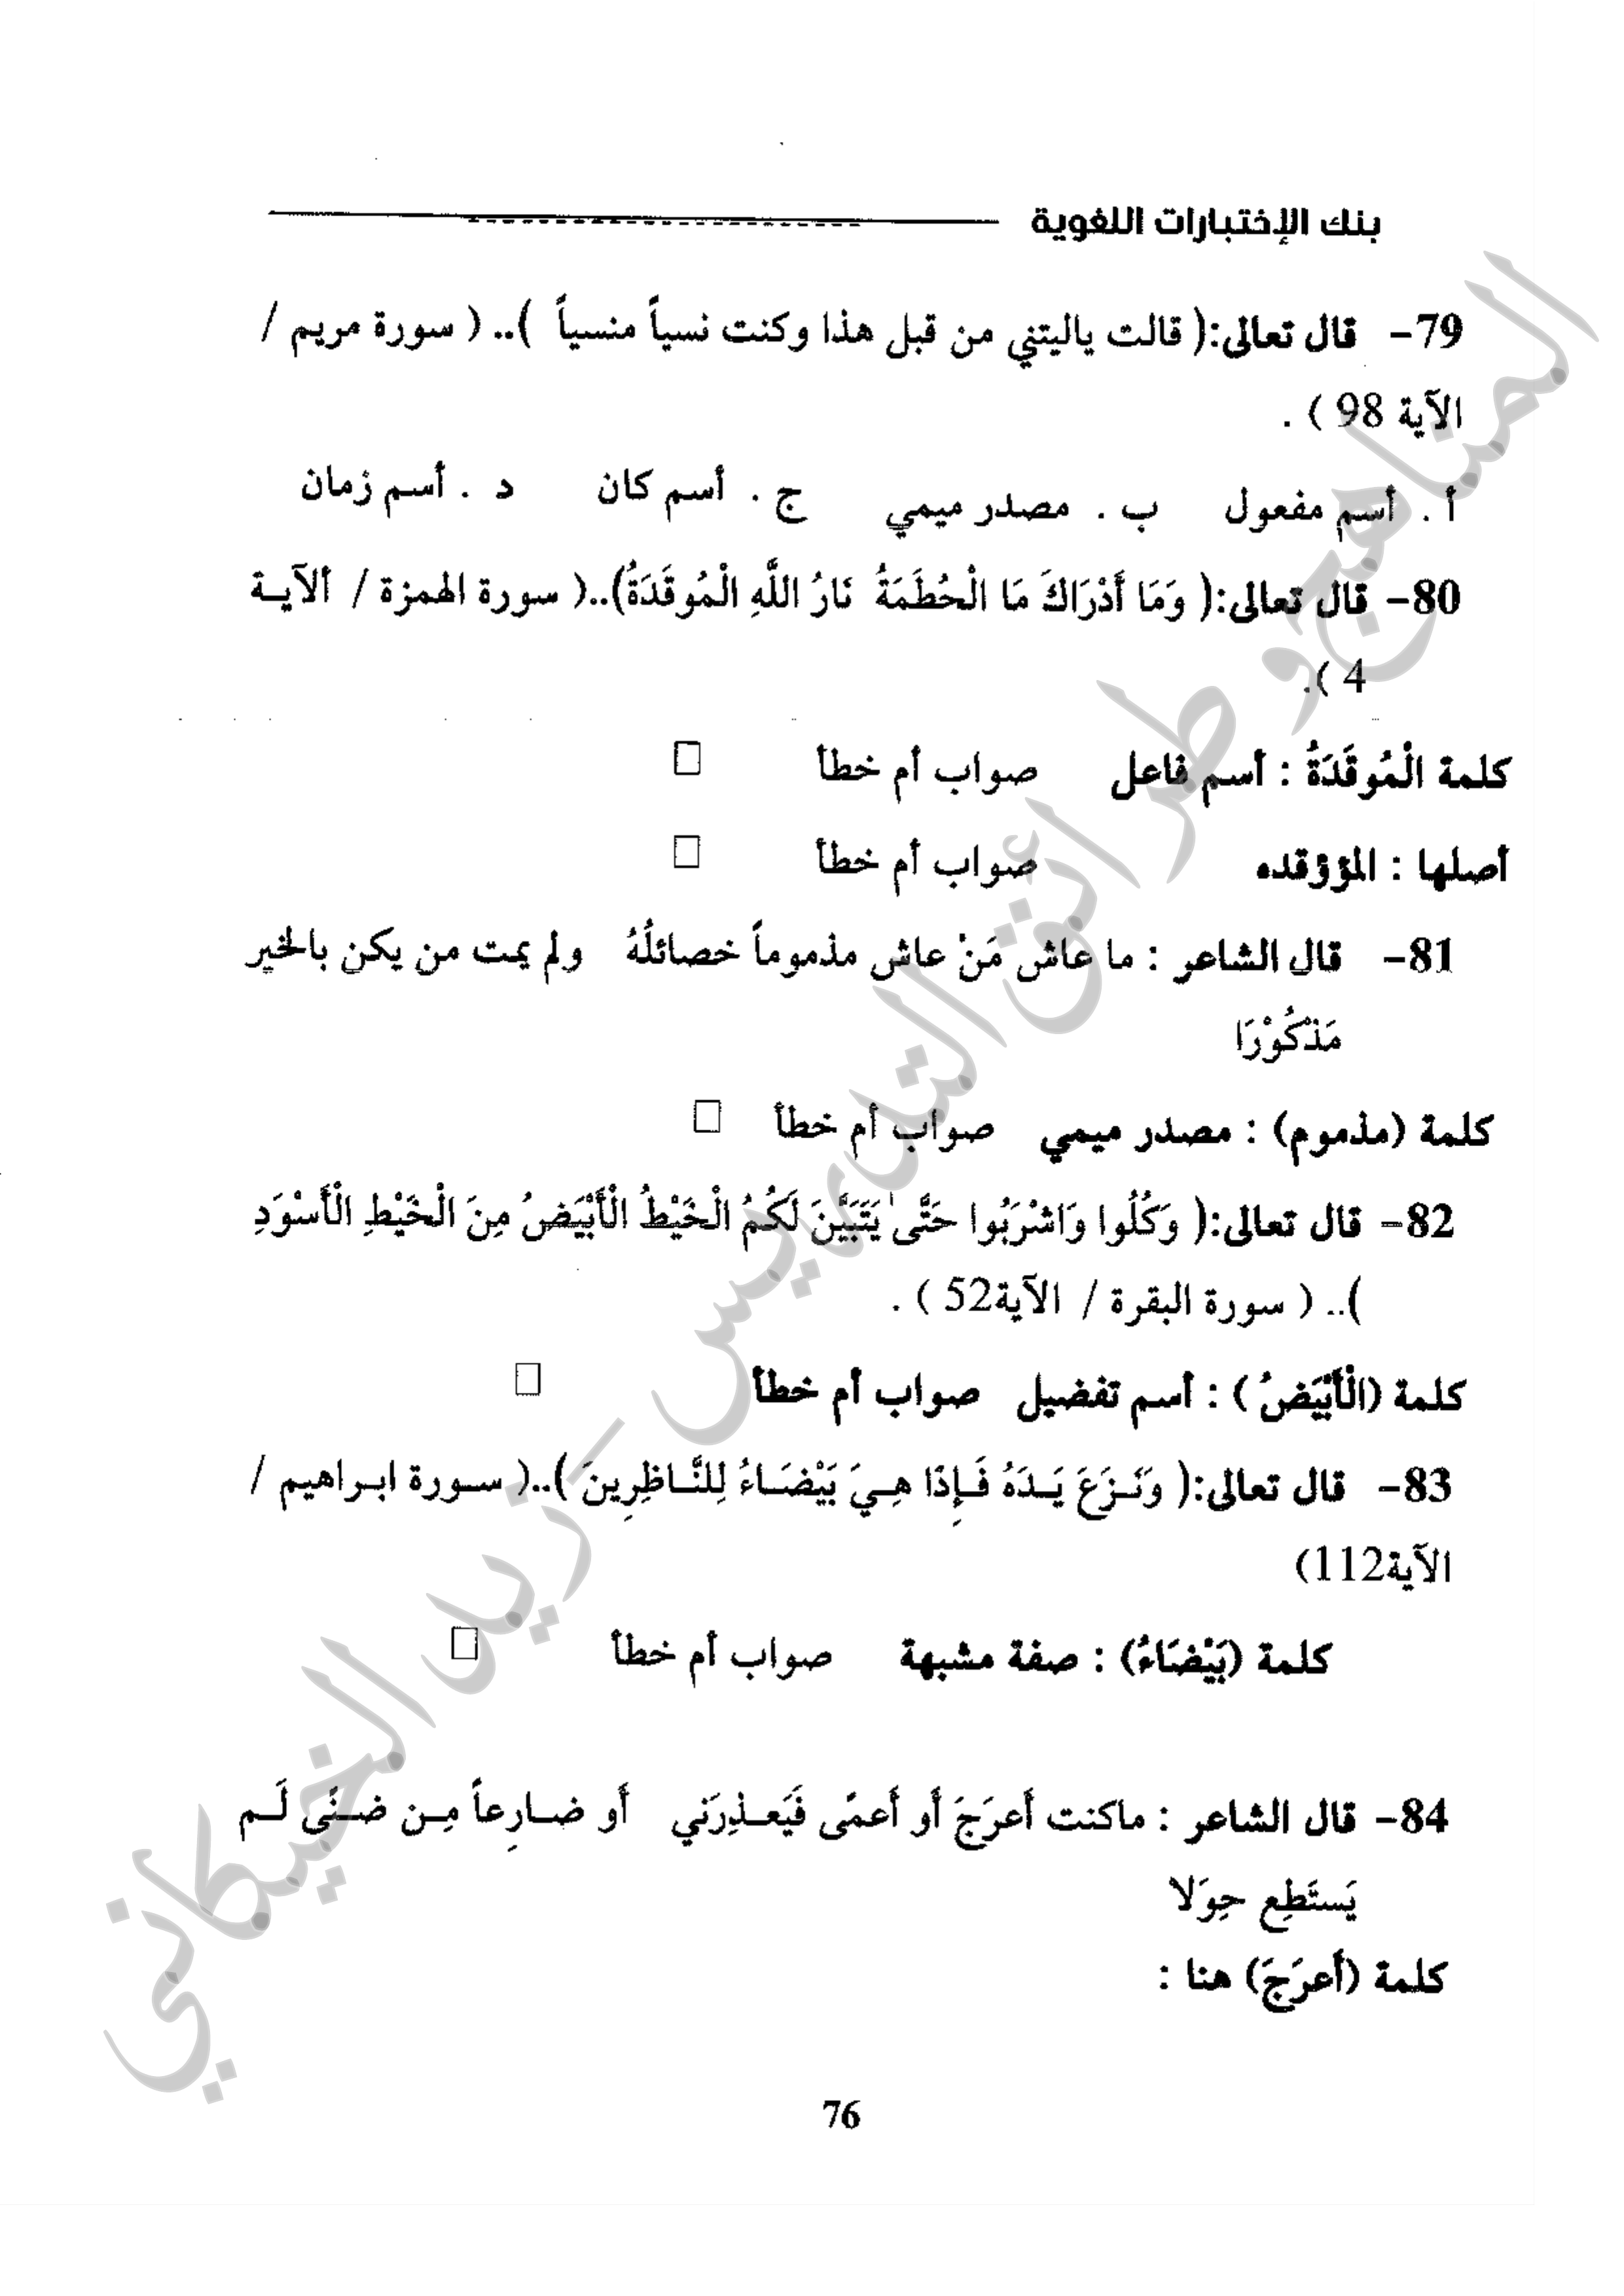 بنك الإختبارات اللغوية
79- قال تعالى:( قالت ياليتني من قبل هذا وكنت نسياً منسياً )..( سورة مريم /
الآية 98 ) .
أ . أسم مفعول ب . مصدر ميمي ج . أسم كان د . أسم زمان
80- قال تعالى:( وَمَا أَدْرَاكَ مَا الْحُطَمَةُ نَارُ اللَّهِ الْمُوقَدَةُ)..( سورة الهمزة / ألآيـة
4 ).
كلمة الْمُوقَدَةُ : أسم فاعل صواب أم خطأ
أصلها : المؤؤقده صواب أم خطأ
81- قال الشاعر : ما عاش مَنْ عاش مذموماً خصائلُهُ ولم يمت من يكن بالخير
مَذْكُوْرَا
كلمة (مذموم) : مصدر ميمي صواب أم خطأ
82- قال تعالى:( وَكُلُوا وَاشْرَبُوا حَتَّىٰ يَتَبَيَّنَ لَكُمُ الْخَيْطُ الْأَبْيَضُ مِنَ الْخَيْطِ الْأَسْوَدِ
).. ( سورة البقرة / الآية52 ) .
كلمة (الْأَبْيَضُ ) : أسم تفضيل صواب أم خطأ
83- قال تعالى:( وَنَـزَعَ يَـدَهُ فَـإِذَا هِـيَ بَيْضَـاءُ لِلنَّـاظِرِينَ )..( سـورة ابـراهيم /
الآية112)
كلمة (بَيْضَاءُ) : صفة مشبهة صواب أم خطأ
84- قال الشاعر : ماكنت أَعرَجَ أَو أَعمًى فَيَعـذِرَني أَو ضـارِعاً مِـن ضـنًى لَـم
يَستَطِع حِوَلا
كلمة (أَعرَجَ) هنا :
76
المناهج وطرائق التدريس - زيد الخيكاني